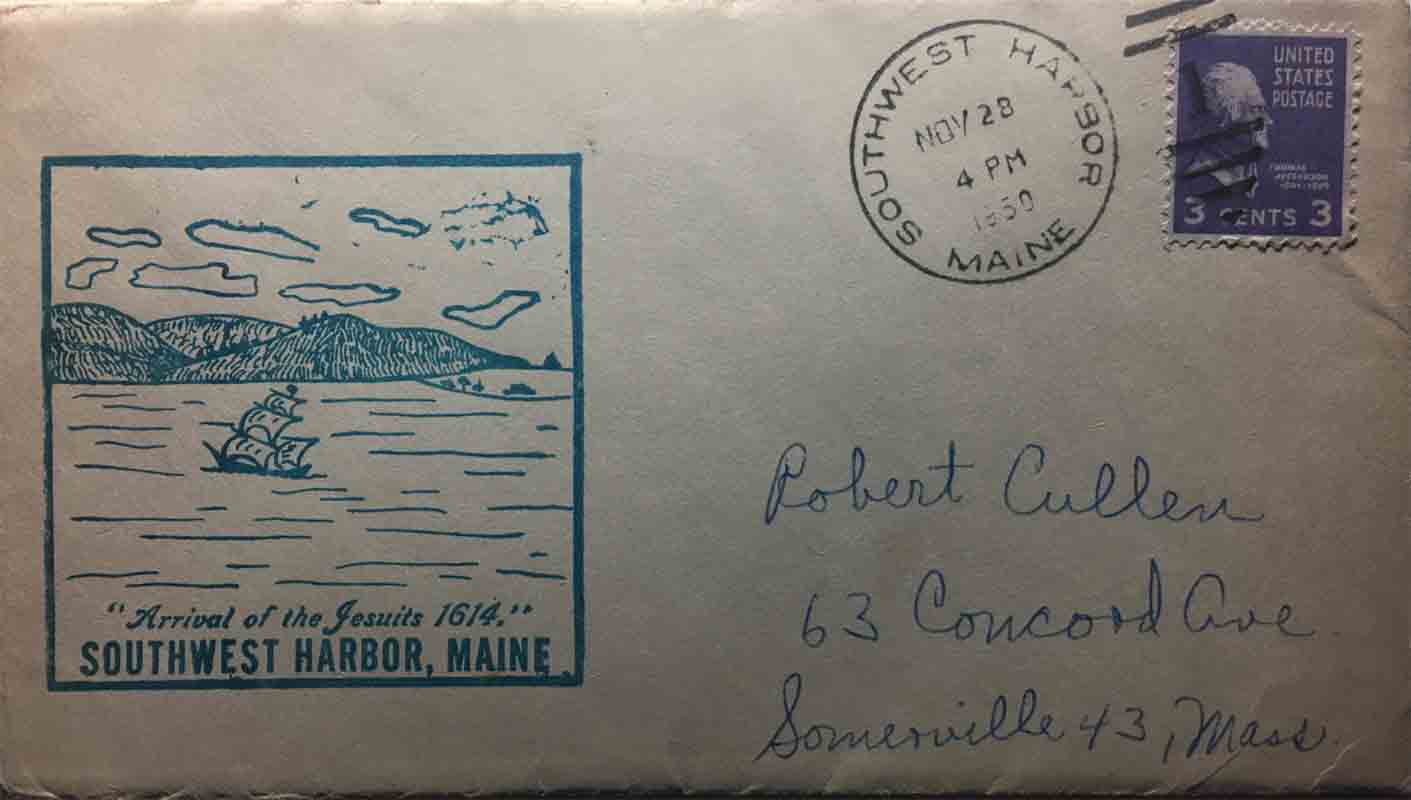 SOUTHWEST HARBOR
NOV 28
4 PM
1950
MAINE
UNITED
STATES
POSTAGE
THOMAS
JEFFERSON
3 CENTS 3
"Arrival of the Jesuits 1614."
SOUTHWEST HARBOR, MAINE
Robert Cullen
63 Concord Ave.
Somerville 43, Mass.